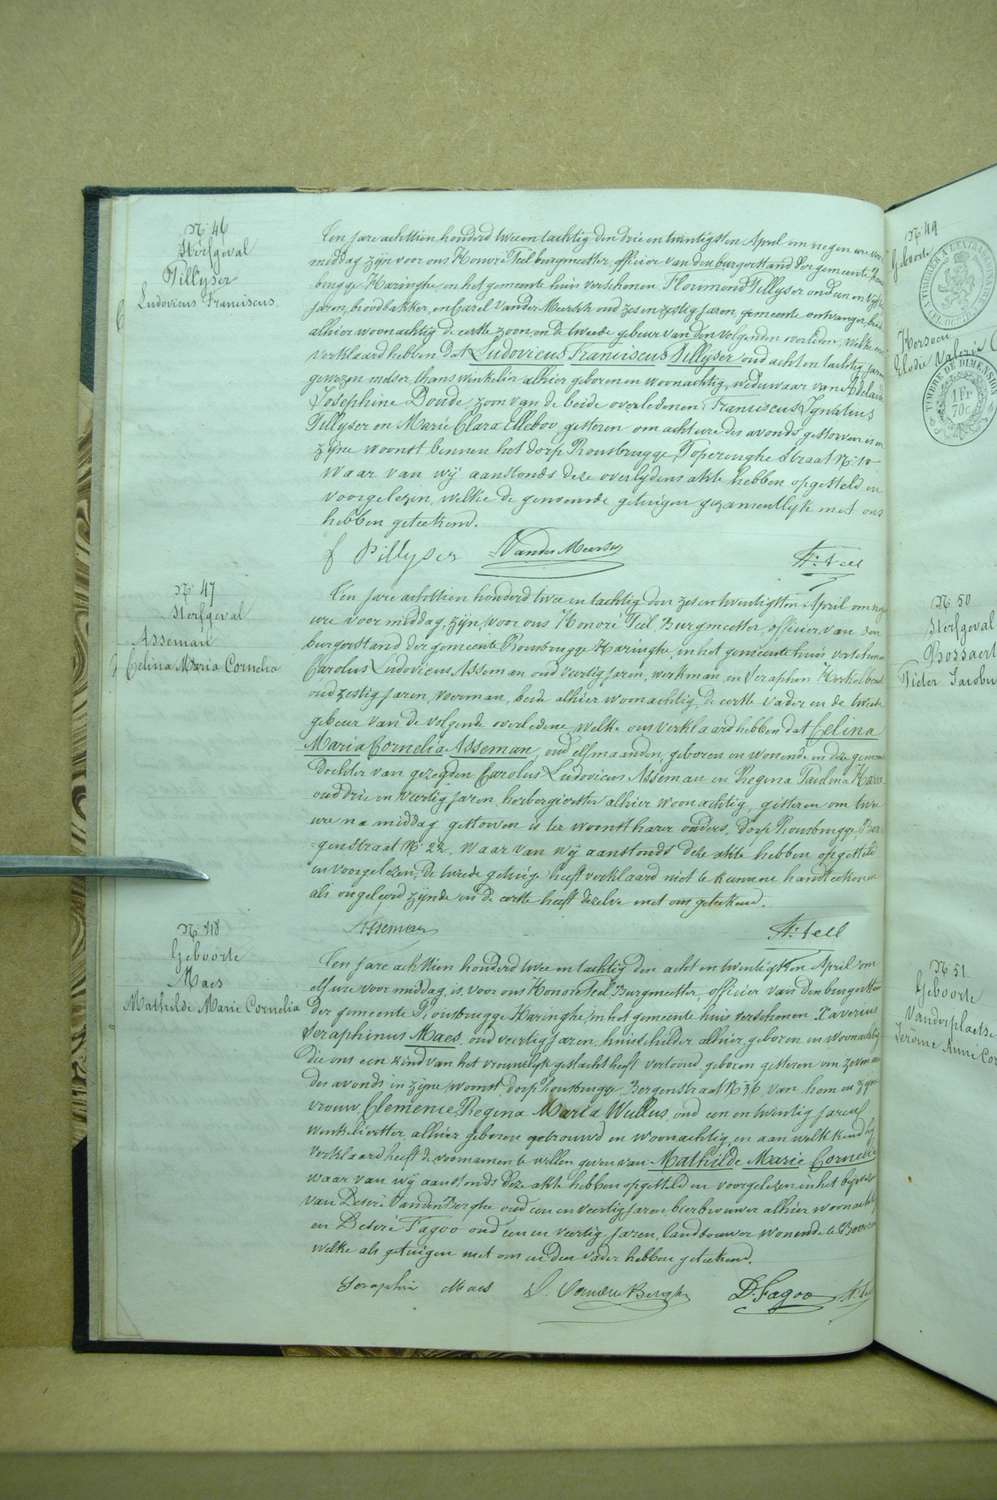 N: 46
Sterfgeval
Pillyser
Ludovicus Franciscus
Een jare achttien honderd twee en tachtig den drie en twintigsten April om negen ure voor
middag zijn voor ons Honoré Teel burgmeester officier van den burgerstand der gemeente Rous
brugge Haringhe, in het gemeente huis verschenen Florimond Pillyser oud een en
jaren, broodbakker, en Carel Vander Meersch oud zes en zestig jaren, gemeente ontvanger, beide
alhier woonachtig de eerste zoon, en de tweede gebeur van den volgenden overleden, welke ons
verklaard hebben dat Ludovicus Franciscus Pillyser oud acht en tachtig jaren
gewezen thans winkelier alhier geboren en woonachtig, weduwaar van Adelaide
Josephine Doude, zoon van de beide overledenen Franciscus Ignatius
Pillyser en Marie Clara Ellebou, gisteren om acht ure des avonds gestorven is in
zijne woonst binnen het dorp Rousbrugge, Poperinghe straat N: 10
Waar van wij aanstonds deze overlijdens akte hebben opgesteld en
voorgelezen, welke de genoemde getuigen gezamentlijk met ons
hebben geteekend.
f Pillyser VanderMeersch H: Teel
N: 47
Sterfgeval
Asseman
Celina Maria Cornelia
Een jare achttien honderd twee en tachtig den zes en twintigsten April om negen
ure voor middag, zijn voor ons Honoré Teel Burgmeester officier van den
burgerstand der gemeente Rousbrugge Haringhe, in het gemeente huis verschenen
Carolus Ludovicus Asseman oud veertig jaren, werkman, en Seraphin
oud zestig jaren, voerman, beide alhier woonachtig, de eerste vader en de tweede
gebeur van de volgende overledene, welke ons verklaard hebben dat Celina
Maria Cornelia Asseman, oud elf maanden, geboren en wonende in deze gemeente
Dochter van gezegden Carolus Ludovicus Asseman en Regina Paulina
oud drie en veertig jaren, herbergierster alhier woonachtig, gisteren om twee
ure na middag gestorven is ter woonst harer ouders, dorp Rousbrugge Ber
genstraat N: 22. Waar van wij aanstonds deze akte hebben opgesteld
en voorgelezen, de tweede getuige heeft verklaard niet te kunnen handteekenen
als ongeleerd zijnde en de eerste heeft dezelve met ons geteekend.
Asseman H: Teel
N: 48
Geboorte
Maes
Mathilde Marie Cornelia
Een jare achttien honderd twee en tachtig den acht en twintigsten April om
elf ure voor middag, is voor ons Honoré Teel Burgmeester, officier van den burgerstand
der gemeente Rousbrugge Haringhe, in het gemeente huis verschenen Xaverius
Seraphinus Maes, oud veertig jaren, huisschilder alhier geboren en woonachtig
die ons een kind van het vrouwelijk geslacht heeft vertoond, geboren gisteren om zeven ure
des avonds in zijne woonst, dorp Rousbrugge, Bergenstraat N: 36 van hem en zijne
vrouw, Clemenie Regina Maria Wullus, oud een en twintig jaren
winkelierster alhier geboren getrouwd en woonachtig, en aan welk kind hij
verklaard heeft de voornamen te willen geven van Mathilde Marie Cornelie
waar van wij aanstonds deze akte hebben opgesteld en voorgelezen in het bijwezen
van Desiré VandenBerghe oud een en veertig jaren bierbrouwer alhier woonachtig
en Desiré Fagoo oud een en veertig jaren, landbouwer wonende te
welke als getuigen met ons en den vader hebben geteekend.
Seraphin Maes D. VandenBerghe D. Fagoo H: Teel
N: 49
Geboorte
Elodie Valerie
TIMBRE DE DIMENSION
1 Fr
70 c
N: 50
Sterfgeval
Bossaert
Pieter Jacobus
N: 51
Geboorte
Vanderplaetse
Jerôme